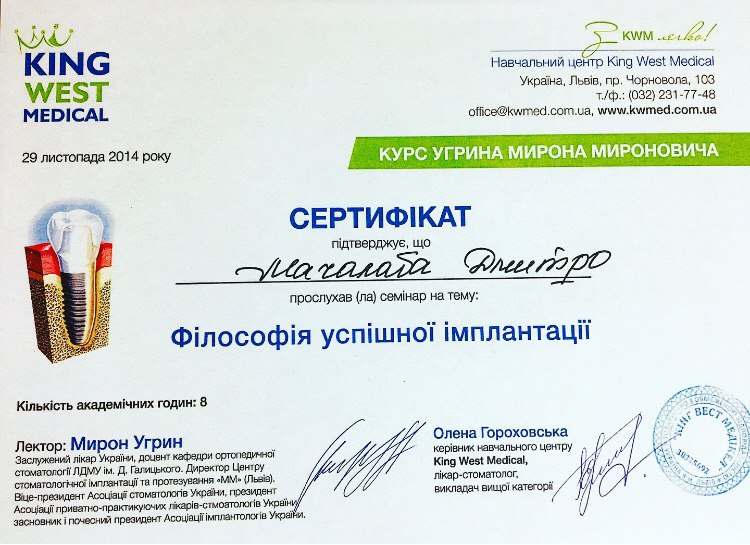 KING
WEST
MEDICAL
KWM легко!
Навчальний центр King West Medical
Україна, Львів, пр. Чорновола, 103
т./ф.: (032) 231-77-48
office@kwmed.com.ua, www.kwmed.com.ua
29 листопада 2014 року
КУРС УГРИНА МИРОНА МИРОНОВИЧА
СЕРТИФІКАТ
підтверджує, що
Махалаба Дмитро
прослухав (ла) семінар на тему:
Філософія успішної імплантації
Кількість академічних годин: 8
Лектор: Мирон Угрин
Заслужений лікар України, доцент кафедри ортопедичної
стоматології ЛДМУ ім. Д. Галицького. Директор Центру
стоматологічної імплантації та протезування «ММ» (Львів).
Віце-президент Асоціації стоматологів України, президент
Асоціації приватно-практикуючих лікарів-стмоатологів України
засновник і почесний президент Асоціації імплантологів України.
Олена Гороховська
керівник навчального центру
King West Medical,
лікар-стоматолог,
викладач вищої категорії
КІНГ ВЕСТ МЕДІКЕЛ